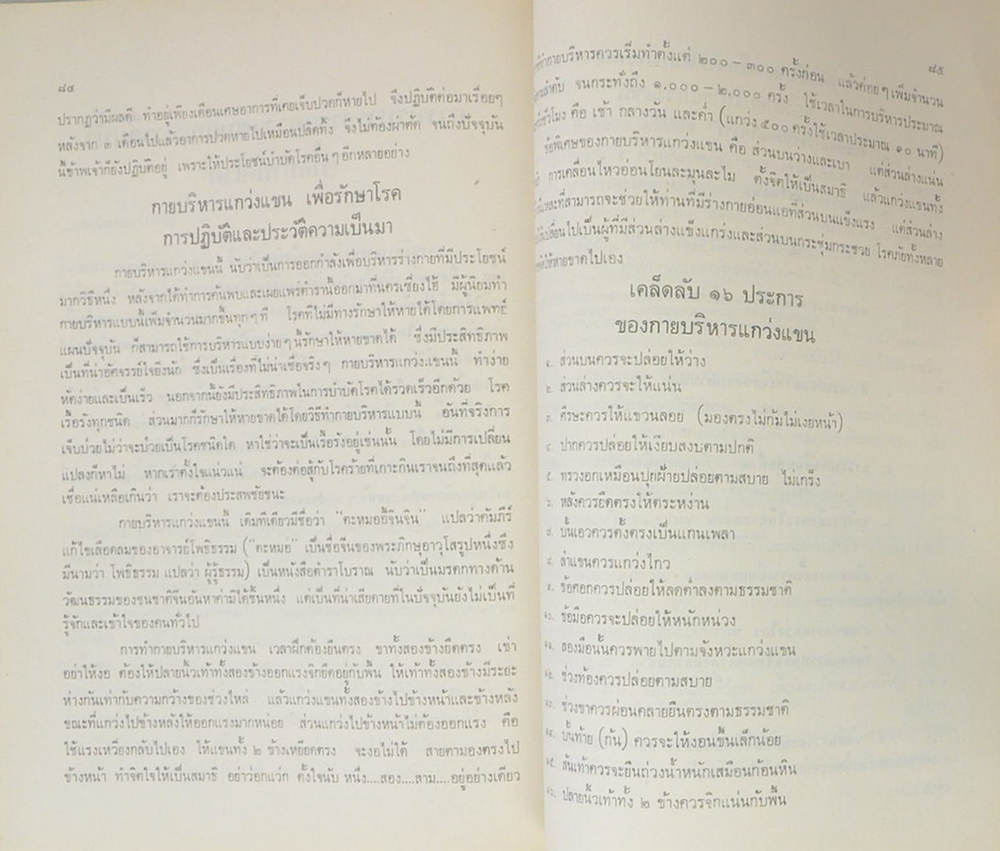 ๘๔
ปรากฏว่ามีผลดี ทำอยู่เพียงเดือนเศษอาการที่เคยเจ็บปวดก็หายไป จึงปฏิบัติต่อมาเรื่อยๆ
หลังจาก ๓ เดือนไปแล้วอาการปวดหายไปเหมือนปลิดทิ้ง จึงไม่ต้องผ่าตัด จนถึงปัจจุบัน
นี้ข้าพเจ้าก็ยังปฏิบัติอยู่ เพราะให้ประโยชน์บำบัดโรคอื่นๆ อีกหลายอย่าง
กายบริหารแกว่งแขน เพื่อรักษาโรค
การปฏิบัติและประวัติความเป็นมา
กายบริหารแกว่งแขนนี้ นับว่าเป็นการออกกำลังเพื่อบริหารร่างกายที่มีประโยชน์
มากวิธีหนึ่ง หลังจากได้ทำการค้นพบและเผยแพร่ตำรานี้ออกมาที่นครเซี่ยงไฮ้ มีผู้นิยมทำ
กายบริหารแบบนี้เพิ่มจำนวนมากขึ้นทุกๆ ที โรคที่ไม่มีทางรักษาให้หายได้โดยการแพทย์
แผนปัจจุบัน ก็สามารถใช้การบริหารแบบง่ายๆ นี้รักษาให้หายขาดได้ ซึ่งมีประสิทธิภาพ
เป็นที่น่าอัศจรรย์ใจยิ่งนัก ซึ่งเป็นเรื่องที่ไม่น่าเชื่อจริงๆ กายบริหารแกว่งแขนนี้ ทำง่าย
หัดง่ายและเป็นเร็ว นอกจากนี้ยังมีประสิทธิภาพในการบำบัดโรคได้รวดเร็วอีกด้วย โรค
เรื้อรังทุกชนิด ส่วนมากก็รักษาให้หายขาดได้โดยวิธีทำกายบริหารแบบนี้ อันที่จริงการ
เจ็บป่วยไม่ว่าจะป่วยเป็นโรคชนิดใด หาใช่ว่าจะเป็นเรื้อรังอยู่เช่นนั้น โดยไม่มีการเปลี่ยน
แปลงก็หาไม่ หากเราตั้งใจแน่วแน่ จะต้องต่อสู้กับโรคร้ายที่เกาะกินเราจนถึงที่สุดแล้ว
เชื่อแน่เหลือเกินว่า เราจะต้องประสพชัยชนะ
กายบริหารแกว่งแขนนี้ เดิมทีเดียวมีชื่อว่า "ตะหมอยี้จินจิน" แปลว่าคัมภีร์
แก้ไขเลือดลมของอาจารย์โพธิธรรม ("ตะหมอ" เป็นชื่อจีนของพระภิกษุอาวุโสรูปหนึ่งซึ่ง
มีนามว่า โพธิธรรม แปลว่า ผู้รู้ธรรม) เป็นหนังสือตำราโบราณ นับว่าเป็นมรดกทางด้าน
วัฒนธรรมของชนชาติจีนอันหาค่ามิได้ชิ้นหนึ่ง แต่เป็นที่น่าเสียดายที่ในปัจจุบันยังไม่เป็นที่
รู้จักและเข้าใจของคนทั่วไป
การทำกายบริหารแกว่งแขน เวลาฝึกต้องยืนตรง ขาทั้งสองข้างยืดตรง เข่า
อย่าให้งอ ต้องให้ปลายนิ้วเท้าทั้งสองข้างออกแรงจิกยึดอยู่กับพื้น ให้เท้าทั้งสองข้างมีระยะ
ห่างกันเท่ากับความกว้างของช่วงไหล่ แล้วแกว่งแขนทั้งสองข้างไปข้างหน้าและข้างหลัง
ขณะที่แกว่งไปข้างหลังให้ออกแรงมากหน่อย ส่วนแกว่งไปข้างหน้าไม่ต้องออกแรง คือ
ใช้แรงเหวี่ยงกลับไปเอง ให้แขนทั้ง ๒ ข้างเหยียดตรง จะงอไม่ได้ สายตามองตรงไป
ข้างหน้า ทำจิตใจให้เป็นสมาธิ อย่าว่อกแว่ก ตั้งใจนับ หนึ่ง....สอง....สาม....อยู่อย่างเดียว
๘๕
กายบริหารควรเริ่มทำตั้งแต่ ๒๐๐ – ๓๐๐ ครั้งก่อน แล้วค่อยๆ เพิ่มจำนวน
จนกระทั่งถึง ๑,๐๐๐ – ๒,๐๐๐ ครั้ง ใช้เวลาในการบริหารประมาณ
ชั่วโมง คือ เช้า กลางวัน และค่ำ (แกว่ง ๕๐๐ ครั้งใช้เวลาประมาณ ๑๐ นาที)
ข้อพิเศษของกายบริหารแกว่งแขน คือ ส่วนบนว่างและเบา แต่ส่วนล่างแน่น
การเคลื่อนไหวอ่อนโยนละมุนละไม ตั้งจิตให้เป็นสมาธิ แล้วแกว่งแขนทั้ง
ที่สามารถจะช่วยให้ท่านที่มีร่างกายอ่อนแอที่ส่วนบนแข็งแรง แต่ส่วนล่าง
เปลี่ยนไปเป็นผู้ที่มีส่วนล่างแข็งแกร่งและส่วนบนกระชุ่มกระชวย โรคภัยทั้งหลาย
ให้หายขาดไปเอง
เคล็ดลับ ๑๖ ประการ
ของกายบริหารแกว่งแขน
๑. ส่วนบนควรจะปล่อยให้ว่าง
๒. ส่วนล่างควรจะให้แน่น
๓. ศีรษะควรให้แขวนลอย (มองตรงไม่ก้มไม่เงยหน้า)
๔. ปากควรปล่อยให้เงียบสงบตามปกติ
๕. ทรวงอกเหมือนปุยฝ้ายปล่อยตามสบาย ไม่เกร็ง
๖. หลังควรยืดตรงให้ตระหง่าน
๗. บั้นเอวควรตั้งตรงเป็นแกนเพลา
๘. ลำแขนควรแกว่งไกว
๙. ข้อศอกควรปล่อยให้ลดต่ำลงตามธรรมชาติ
๑๐. ข้อมือควรจะปล่อยให้หนักหน่วง
๑๑. สองมือนั้นควรพายไปตามจังหวะแกว่งแขน
๑๒. ช่วงท้องควรปล่อยตามสบาย
๑๓. ช่วงขาควรผ่อนคลายยืนตรงตามธรรมชาติ
๑๔. บั้นท้าย (ก้น) ควรจะให้งอนขึ้นเล็กน้อย
๑๕. ส้นเท้าควรจะยืนถ่วงน้ำหนักเสมือนก้อนหิน
๑๖. ปลายนิ้วเท้าทั้ง ๒ ข้างควรจิกแน่นกับพื้น